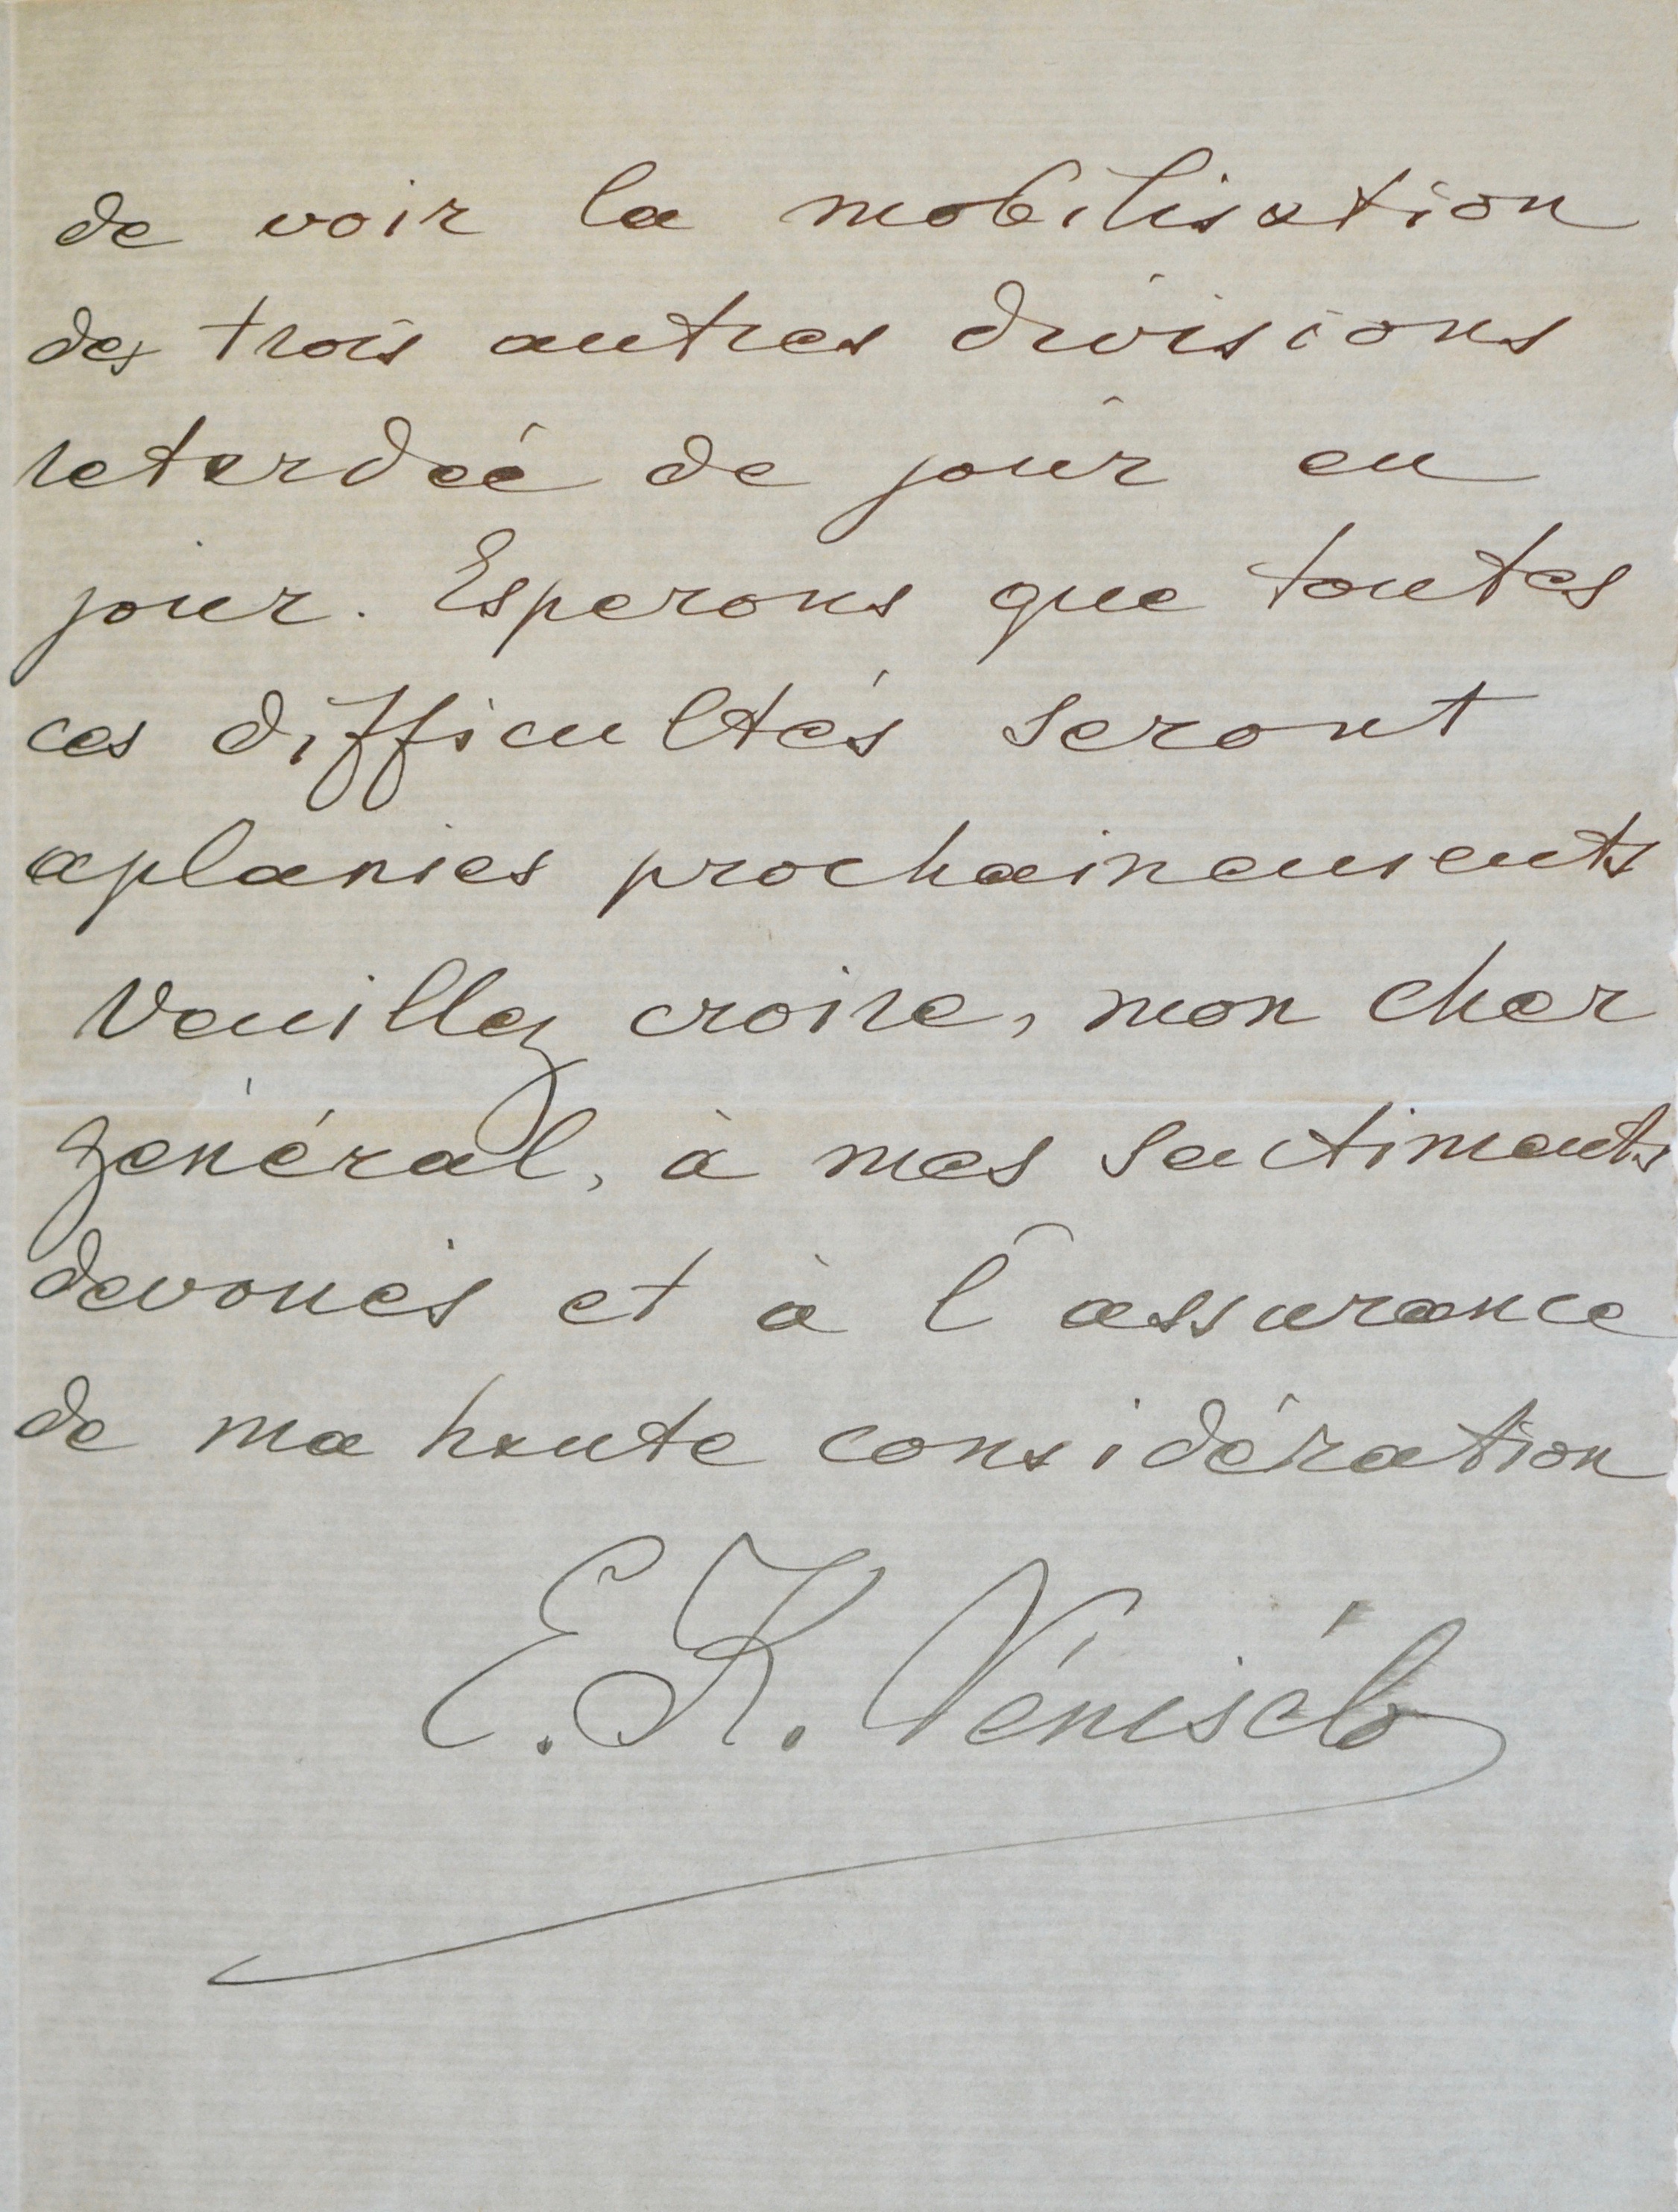 de voir la mobilisation
des trois autres divisions
retardeé de jour en
jour. Esperons que toutes
ces difficultés seront
aplanies prochainements
Veuillez croire, mon cher
général, à mes sentiments
devoués et à l'assurance
de ma haute considération
E. K. Vénisélo